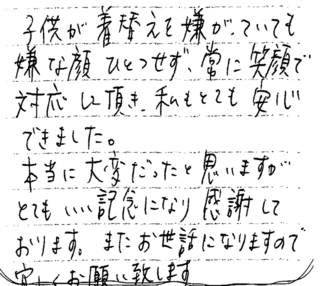 子供が着替えを嫌がっていても
嫌な顔ひとつせず、常に笑顔で
対応して頂き、私もとても安心
できました。
本当に大変だったと思いますが
とてもいい記念になり感謝して
おります。またお世話になりますので
宜しくお願い致します